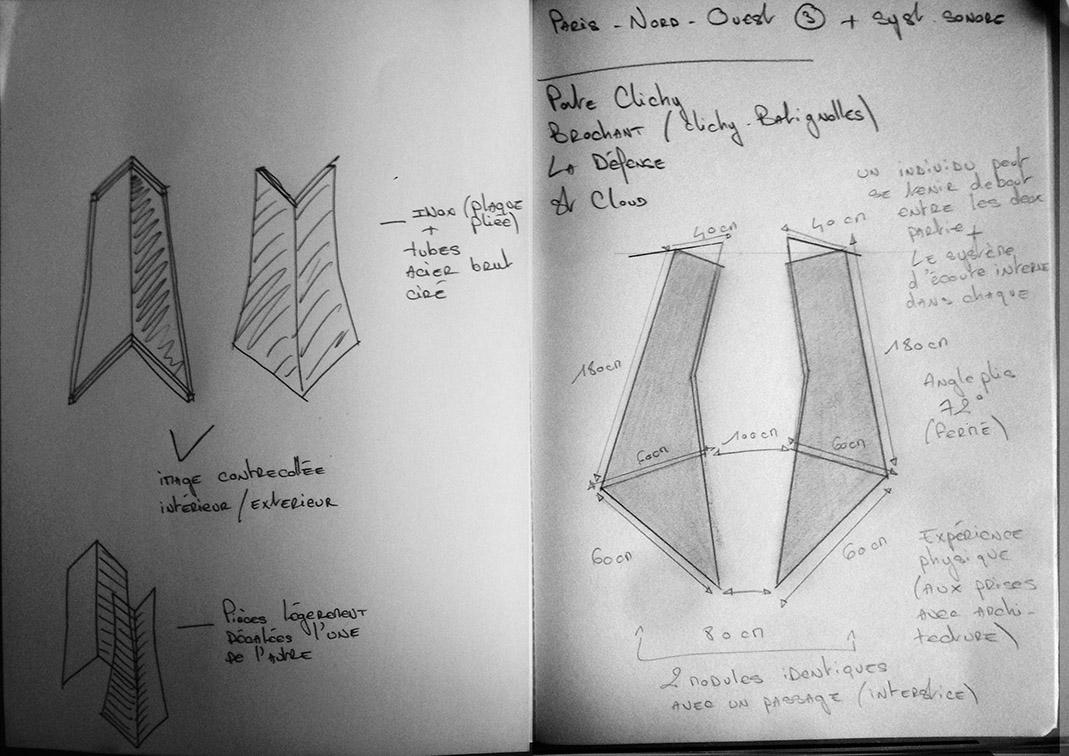 INOX (plaque
pliée)
+
tubes
Acier brut
ciré
image contrecollée
intérieur / extérieur
Pièces légèrement
décalées l'une
de l'autre
PARIS - NORD - OUEST ③ + syst. sonore
Porte Clichy
BROCHANT (Clichy-Batignolles)
La Défense
St Cloud
UN INDIVIDU peut
se tenir debout
entre les deux
partie +
Le système
d'écoute interne
dans chaque
40cm
40cm
180cm
180cm
Angle plié
72°
(fermé)
100cm
60cm
60cm
60cm
60cm
Expérience
physique
(aux prises
avec archi-
tecture)
80cm
2 modules identiques
avec un passage (interstice)